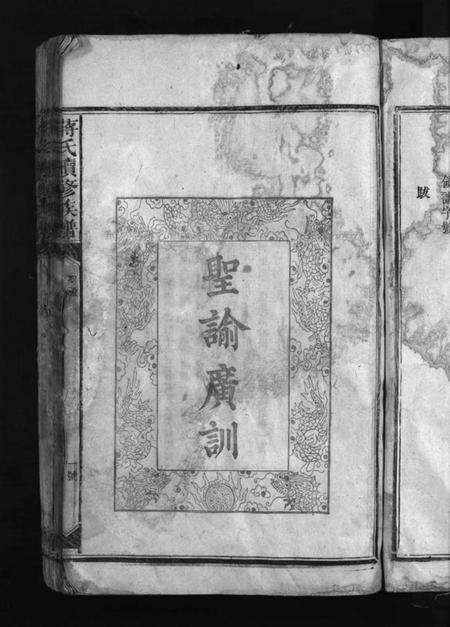 聖諭廣訓
蔣氏續修族譜
跋